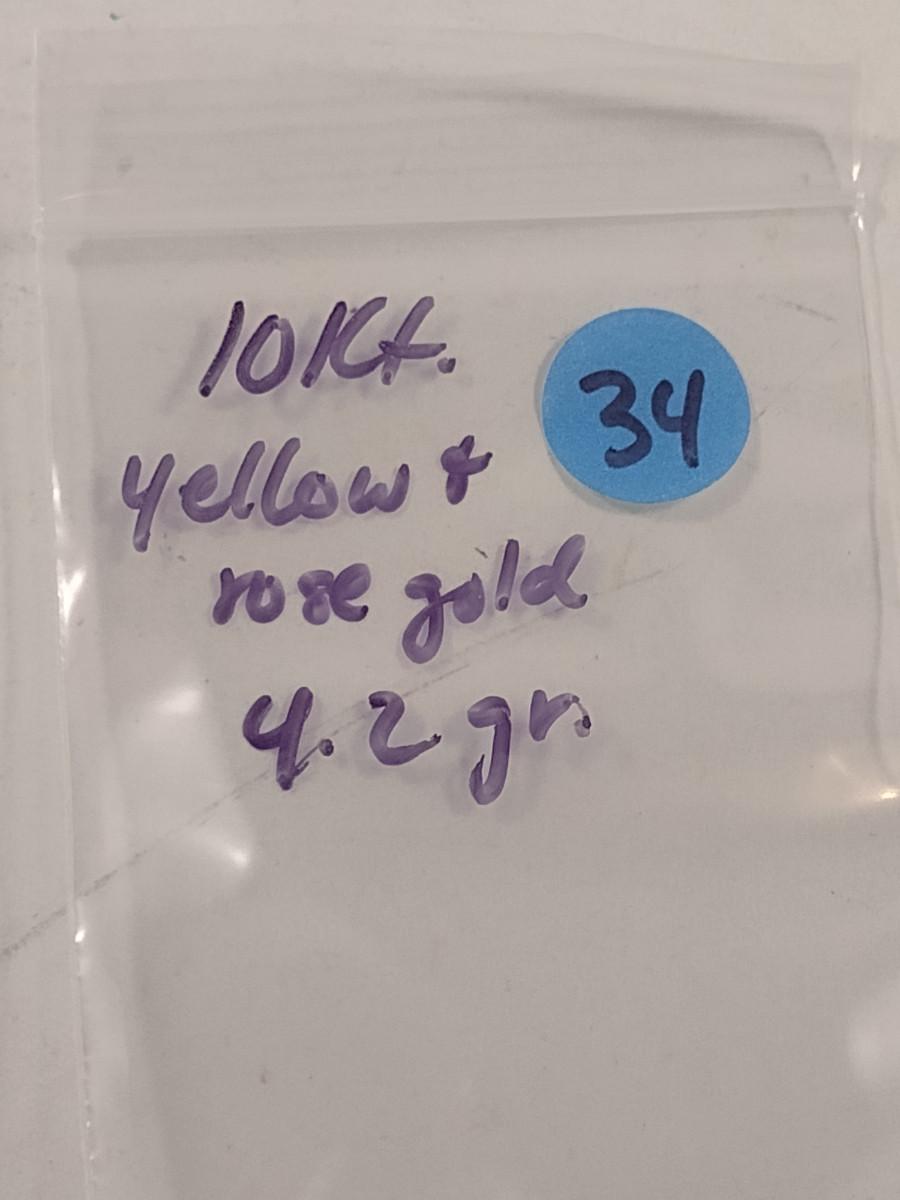 10Kt.
34
yellow &
rose gold
4.2 gr.